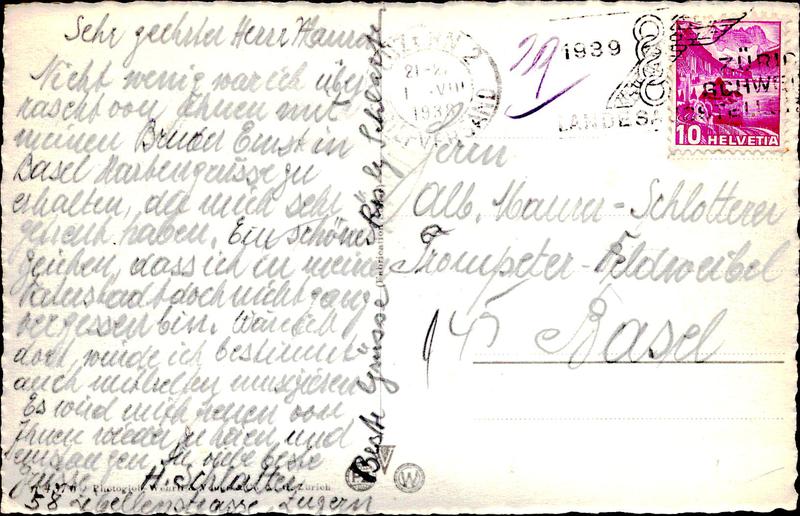 Sehr geehrter Herr Maurer
Nicht wenig war ich über
rascht von Ihnen und
meinen Bruder Ernst in
Basel Kartengrüsse zu
erhalten, die mich sehr
gefreut haben. Ein schönes
Zeichen, dass ich in meine
Vaterstadt doch nicht ganz
vergessen bin. Wäre ich
dort, würde ich bestimmt
auch mithelfen musizieren
Es wird mich freuen von
Ihnen wieder zu hören und
empfangen Sie viele beste
Grüsse H. Schlatter
58 Libellenstrasse, Luzern
Beste Grüsse Rosly Schlatter
LUZERN 2
1. VIII
1939
VERSAND
29
1939
LANDES
ZÜRICH
SCHWEIZ
AUSSTELLUNG
10 HELVETIA
Herrn
Alb. Maurer-Schlotterer
Trompeter-Feldweibel
Basel
Photoglob-Wehrli & Vouga & Co. A.G. Zürich
P W